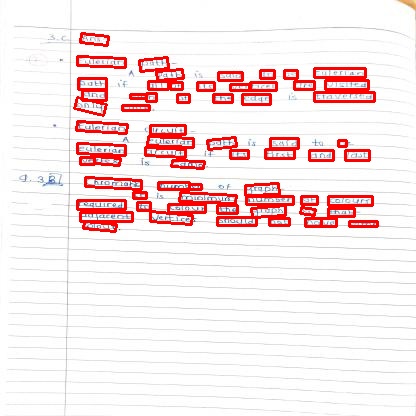 3.C Ans
Eulerian path -
A path is said to be Eulerian
path if all of its are visited
and of the edge is travelled
only
Eulerian circuit -
A Eulerian path is said to
Eulerian circuit if its first and
vertex is
Q.3B] Chromatic number of graph
is minimum number of colours
required to colour the graph so that
adjacent vertices should not have
colour